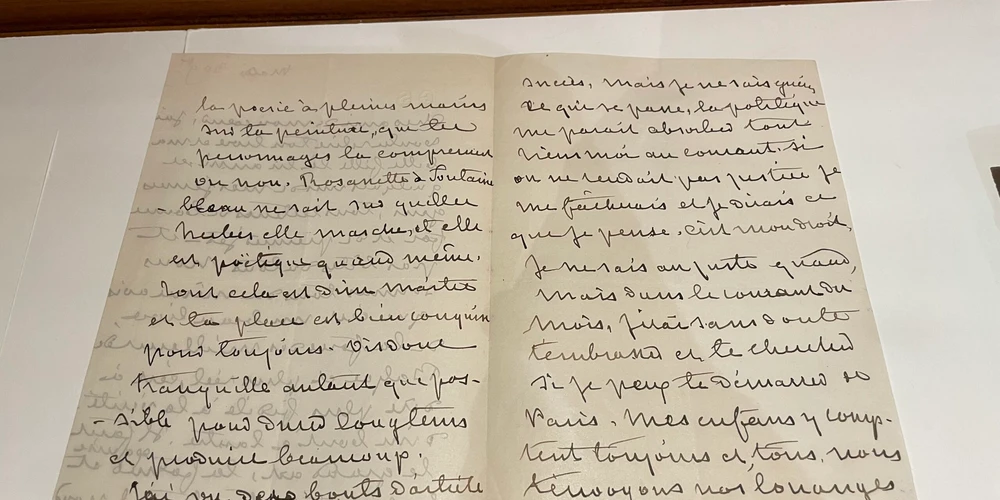 la poésie à pleines mains
sur ta peinture, que tes
personnages la comprennent
ou non. Rosanette à Fontaine
- bleau ne sait sur quelles
herbes elle marche, et elle
est poëtique quand même.
Tout cela est d'un maître
et ta place est bien conquise
pour toujours. Vis donc
tranquille autant que pos-
- sible pour durer longtems
et produire beaucoup.
J'ai vu deux bouts d'article
succès, mais je ne sais guères
ce qui se passe, la politique
me parait absorber tout
tiens moi au courant. si
on ne rendait pas justice je
me fâcherais et je dirais ce
que je pense. c'est mon droit.
Je ne sais au juste quand,
mais dans le courant du
mois, j'irai sans doute
t'embrasser et te chercher
si je peux te démarrer de
Paris. Mes enfans y comp-
tent toujours et, tous, nous
t'envoyons nos louanges